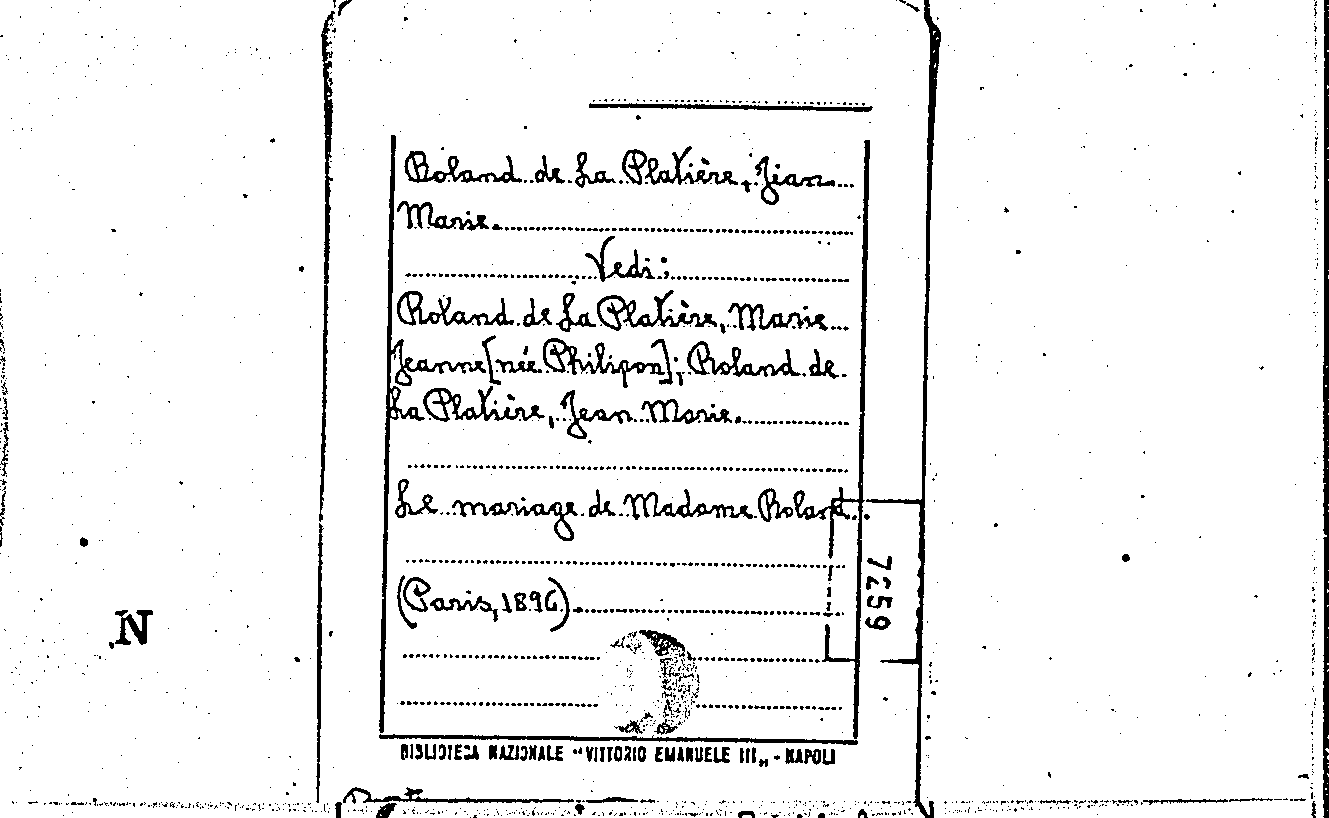 Roland de La Platière, Jean
Marie.
Vedi:
Roland de La Platière, Marie
Jeanne [née Philipon]; Roland de
La Platière, Jean Marie.
Le mariage de Madame Roland.
(Paris, 1896).
7259
N
BIBLIOTECA NAZIONALE "VITTORIO EMANUELE III„ - NAPOLI